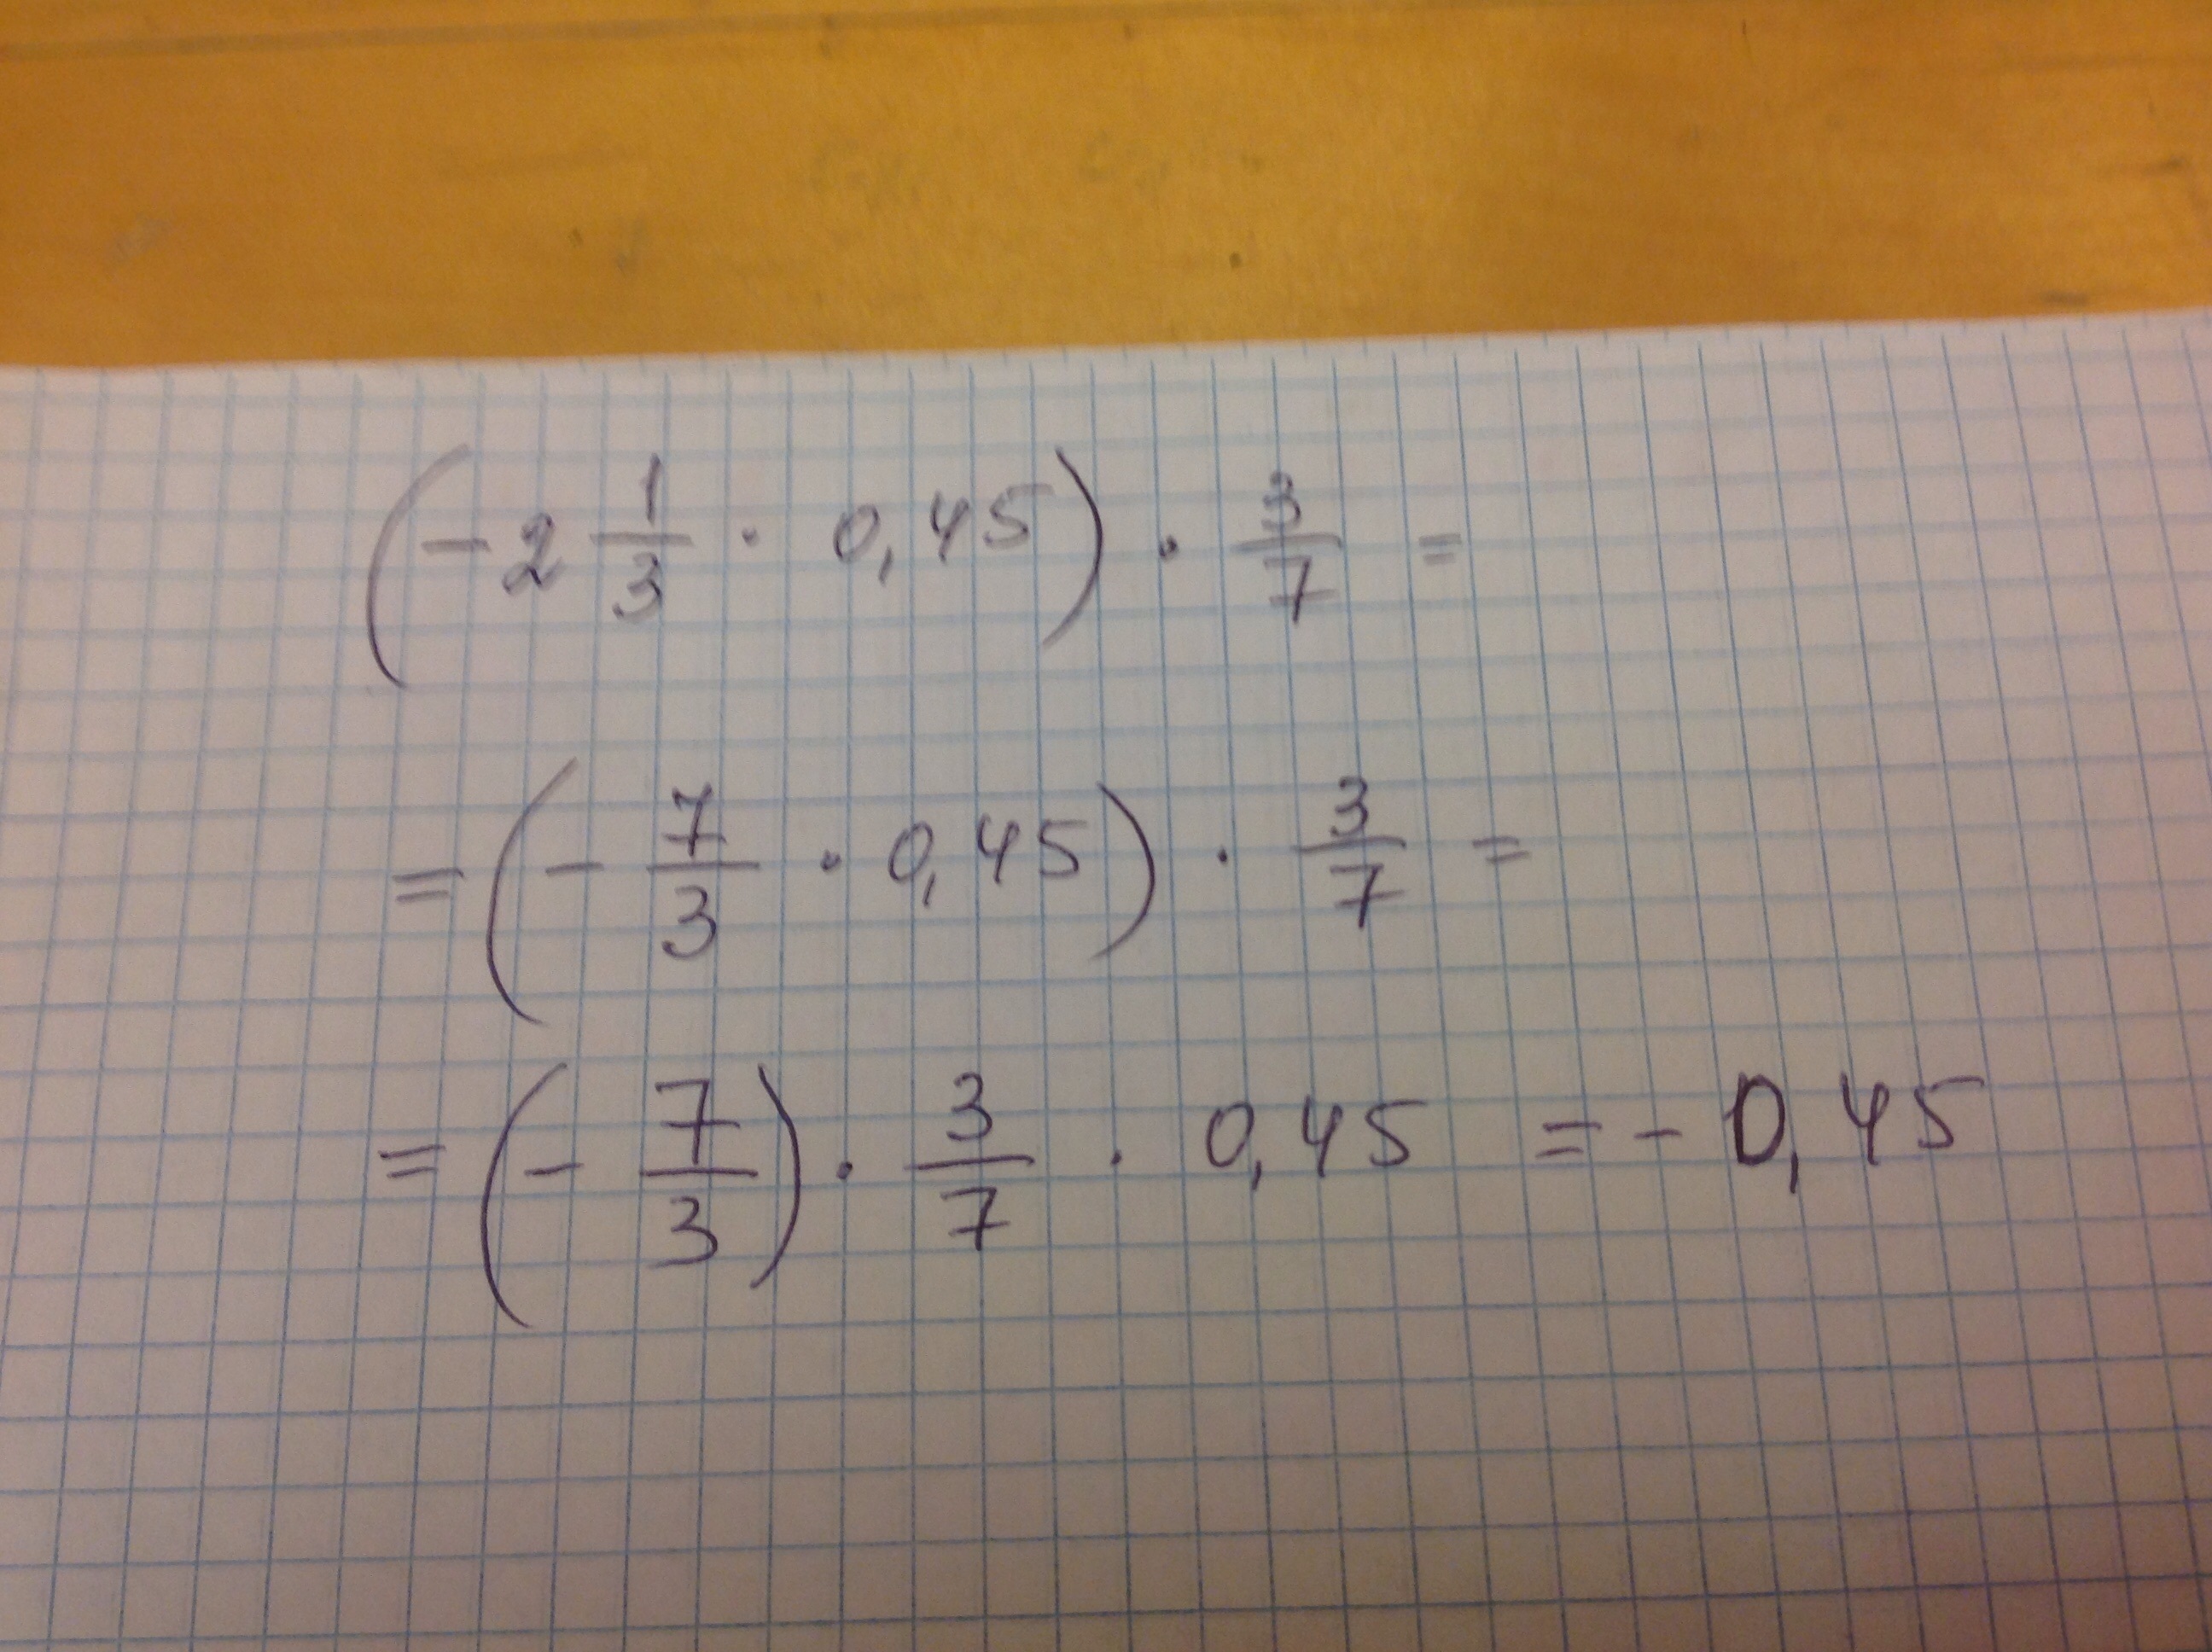 (-2 1/3 · 0,45) · 3/7 =
= (- 7/3 · 0,45) · 3/7 =
= (- 7/3) · 3/7 · 0,45 = - 0,45